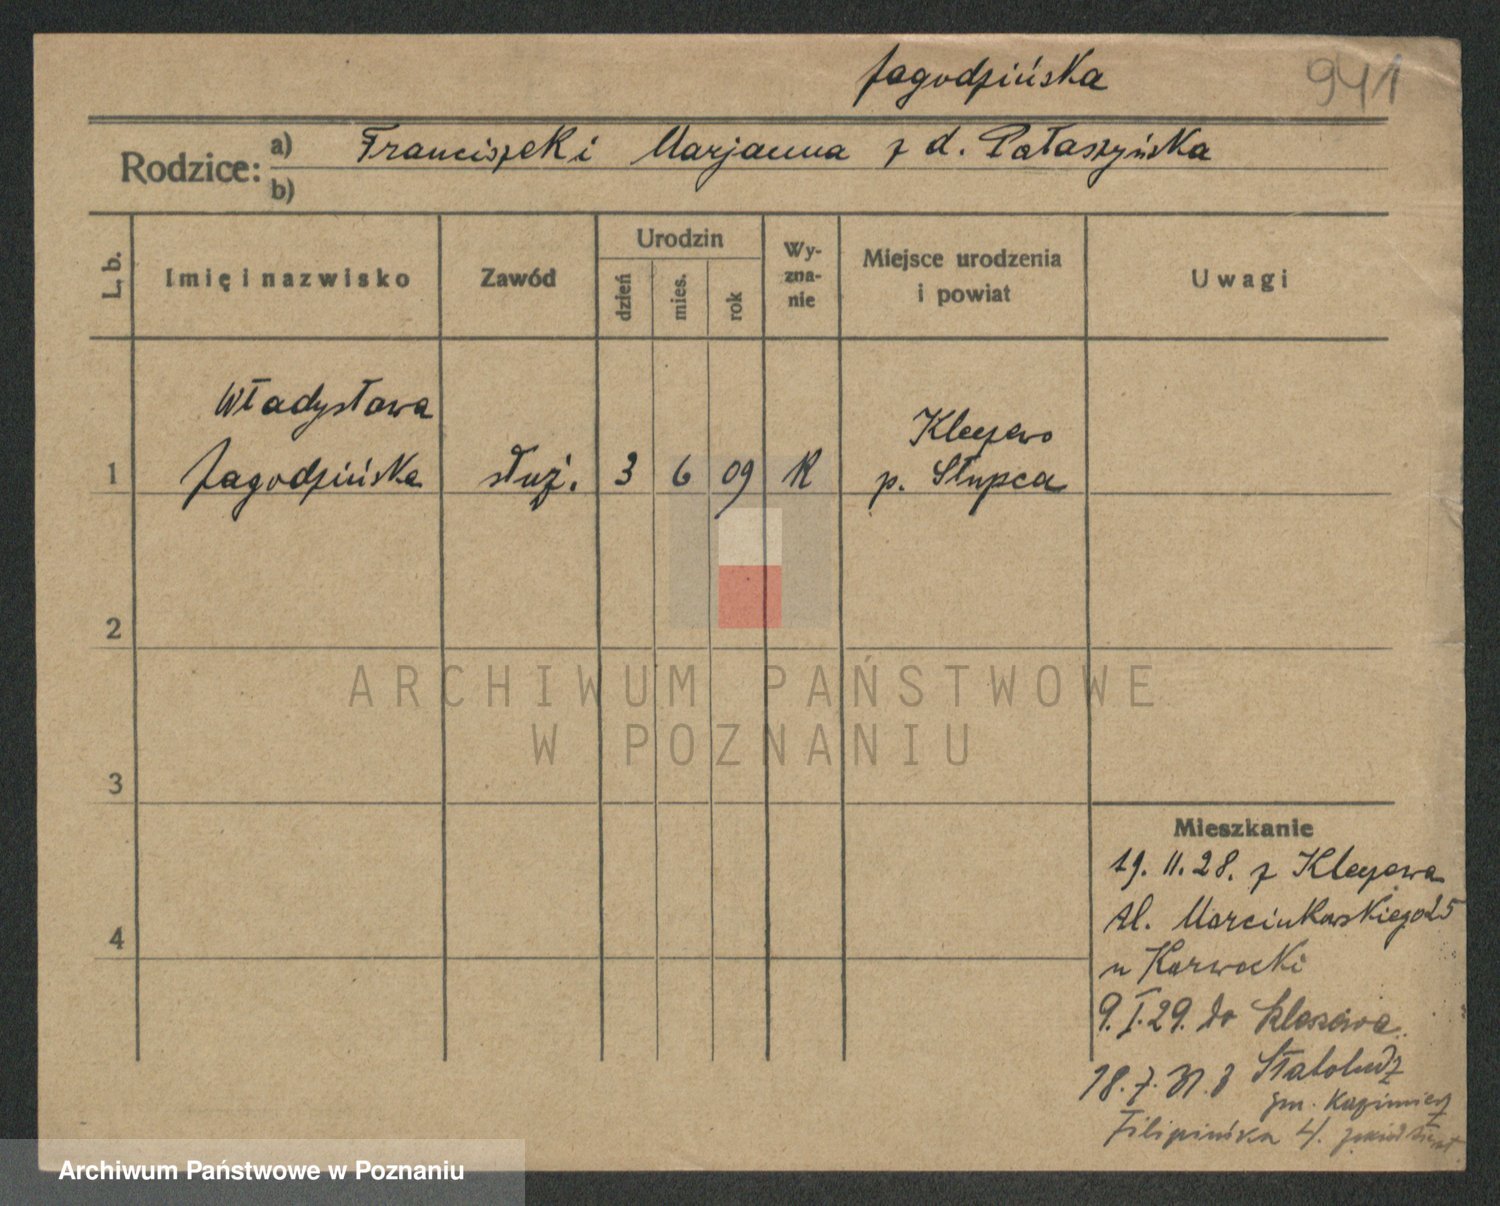 Jagodzińska 941
Rodzice: a) Franciszek i Marjanna z d. Pałaszyńska
b)
L. b. Imię i nazwisko Zawód Urodzin dzień mies. rok Wyzna-nie Miejsce urodzenia i powiat Uwagi
Władysława
Jagodzińska
1 służ. 3 6 09 R Kleczewo
p. Słupca
2
ARCHIWUM PAŃSTWOWE
W POZNANIU
3
Mieszkanie
19. 11. 28. z Kleczewa
Al. Marcinkowskiego 25
u Karwacki
4
9. I. 29. do Kleszewa
18. 7. 31. z
gm. Kazimierz
Filipińska 4.
Archiwum Państwowe w Poznaniu